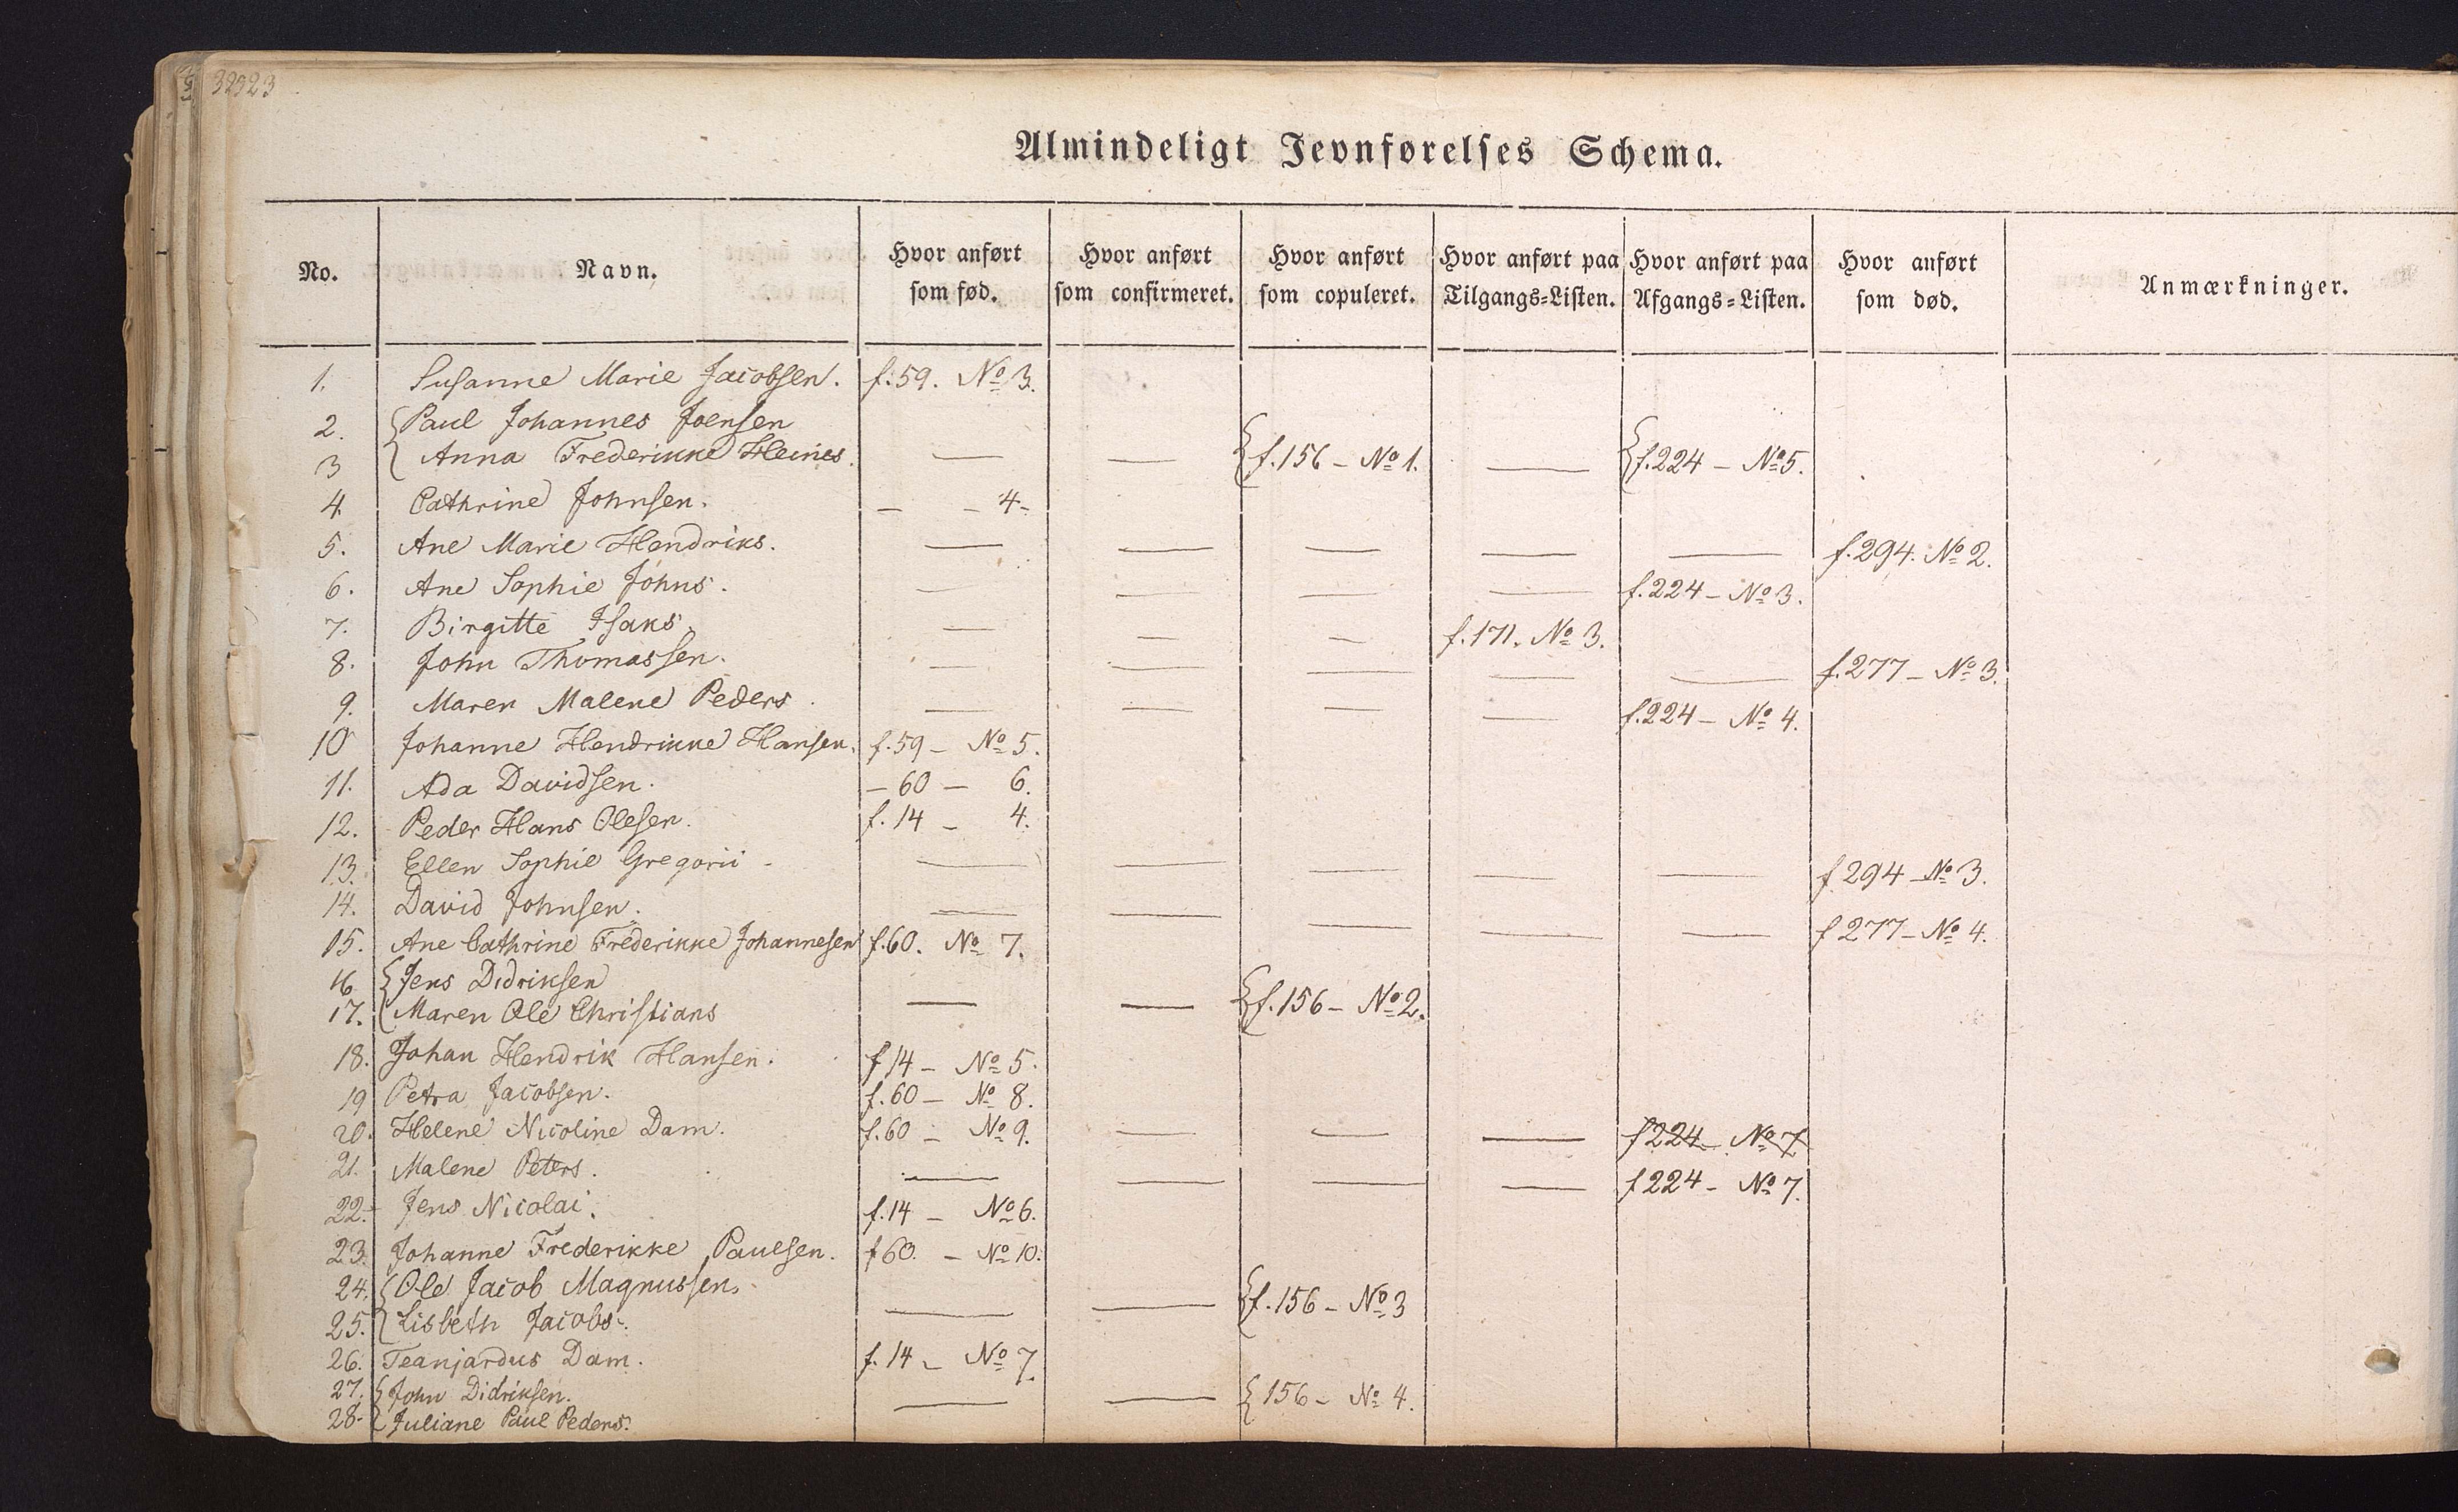 32323
Almindeligt Jevnførelses Schema.
No. Navn. Hvor anført som fød. Hvor anført som confirmeret. Hvor anført som copuleret. Hvor anført paa Tilgangs=Listen. Hvor anført paa Afgangs=Listen. Hvor anført som død. Anmærkninger.
1. Susanne Marie Jacobsen. f. 59. No 3.
2. { Paul Johannes Joensen
3 { Anna Frederikke Heines. — — { f. 156 – No 1. — { f. 224 – No 5.
4. Cathrine Johnsen. – – 4–
5. Ane Marie Hendriks. — — — — — f. 294. No 2.
6. Ane Sophie Johns. — — — — f. 224 – No 3.
7. Birgitte Isaks. — — — f. 171. No 3.
8. John Thomassen. — — — — — f. 277 – No 3.
9. Maren Malene Peders. — — — — f. 224 – No 4.
10 Johanne Hendrikke Hansen. f. 59 – No 5.
11. Ada Davidsen. – 60 – 6.
12. Peder Hans Olesen. f. 14 – 4.
13. Ellen Sophie Gregorii – — — — — — f. 294 – No 3.
14. David Johnsen. — — — — — f 277 – No 4.
15. Ane Cathrine Frederikke Johannesen f. 60. No 7.
16 { Jens Didriksen
17. { Maren Ole Christians — — { f. 156 – No 2.
18. Johan Hendrik Hansen. f 14 – No 5.
19 Petra Jacobsen. f. 60 – No 8.
20. Helene Nicoline Dam. f. 60 – No 9. — — — f 224 – No 7
21. Malene Peters. — — — — f 224 – No 7.
22. Jens Nicolai. f. 14 – No 6.
23. Johanne Frederikke Paulsen. f 60. – No 10.
24. { Ole Jacob Magnussen.
25. { Lisbeth Jacobs. — — { f. 156 – No 3
26. Teanjardus Dam. f. 14 – No 7.
27. { John Didriksen.
28. { Juliane Paul Peders. — — { 156 – No 4.